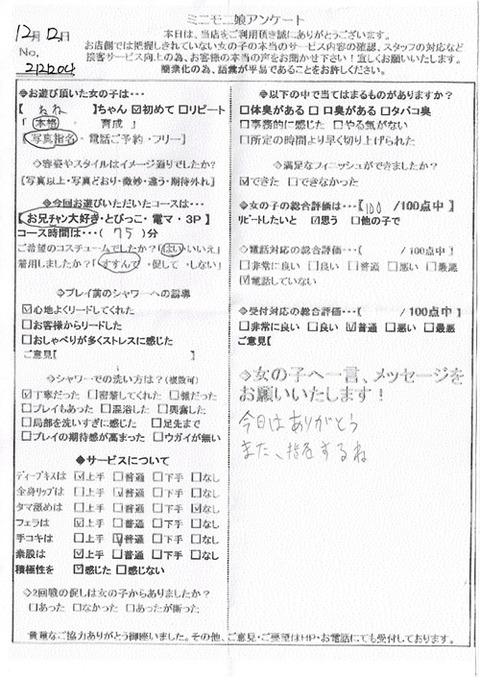 ミニモニ娘アンケート
12月12日
No.
本日は、当店をご利用頂き誠にありがとうございます。
お店側では把握しきれていない女の子の本当のサービス内容の確認、スタッフの対応など
接客サービス向上の為、お客様の本当の声をお聞かせ下さい！宜しくお願いいたします。
簡素化の為、語彙が平易であることをお許しください。
◇お遊び頂いた女の子は…
【 ちゃん ☑初めて □リピート
「 本格 ・ 育成 」
(写真指名・電話ご予約・フリー】
◇容姿やスタイルはイメージ通りでしたか？
【写真以上・写真どおり・微妙・違う・期待外れ】
◇今回お遊びいただいたコースは…
【お兄チャン大好き・とびっこ・電マ・3P】
コース時間は…( 75 )分
ご希望のコスチュームでしたか？(はい・いいえ)
着用しましたか？(すすんで・促して・しない)
◇プレイ前のシャワーへの誘導
☑心地よくリードしてくれた
□お客様からリードした
□おしゃべりが多くストレスに感じた
ご意見【 】
◇シャワーでの洗い方は？(複数可)
☑丁寧だった □密着してくれた □雑だった
□プレイもあった □混浴した □興奮した
□局部を洗いすぎに感じた □足先まで
□プレイの期待感が高まった □ウガイが無い
◆サービスについて
ディープキスは ☑上手 □普通 □下手 □なし
全身リップは □上手 ☑普通 □下手 □なし
タマ舐めは □上手 □普通 □下手 ☑なし
フェラは ☑上手 □普通 □下手 □なし
手コキは □上手 ☑普通 □下手 □なし
素股は ☑上手 □普通 □下手 □なし
積極性を ☑感じた □感じない
◇2回戦の促しは女の子からありましたか？
□あった □なかった □あったが断った
◇以下の中で当てはまるものがありますか？
□体臭がある □口臭がある □タバコ臭
□事務的に感じた □やる気がない
□所定の時間より早く切り上げられた
◇満足なフィニッシュができましたか？
☑できた □できなかった
◇女の子の総合評価は…【 100 /100点中】
リピートしたいと ☑思う □他の子で
◇電話対応の総合評価…( /100点中)
□非常に良い □良い □普通 □悪い □最悪
☑電話していない
◇受付対応の総合評価…( /100点中)
□非常に良い □良い ☑普通 □悪い □最悪
ご意見【
◇女の子へ一言、メッセージを
お願いいたします！
今日はありがとう
また、指名するね
貴重なご協力ありがとう御座いました。その他、ご意見・ご要望はHP・お電話にても受付しております。